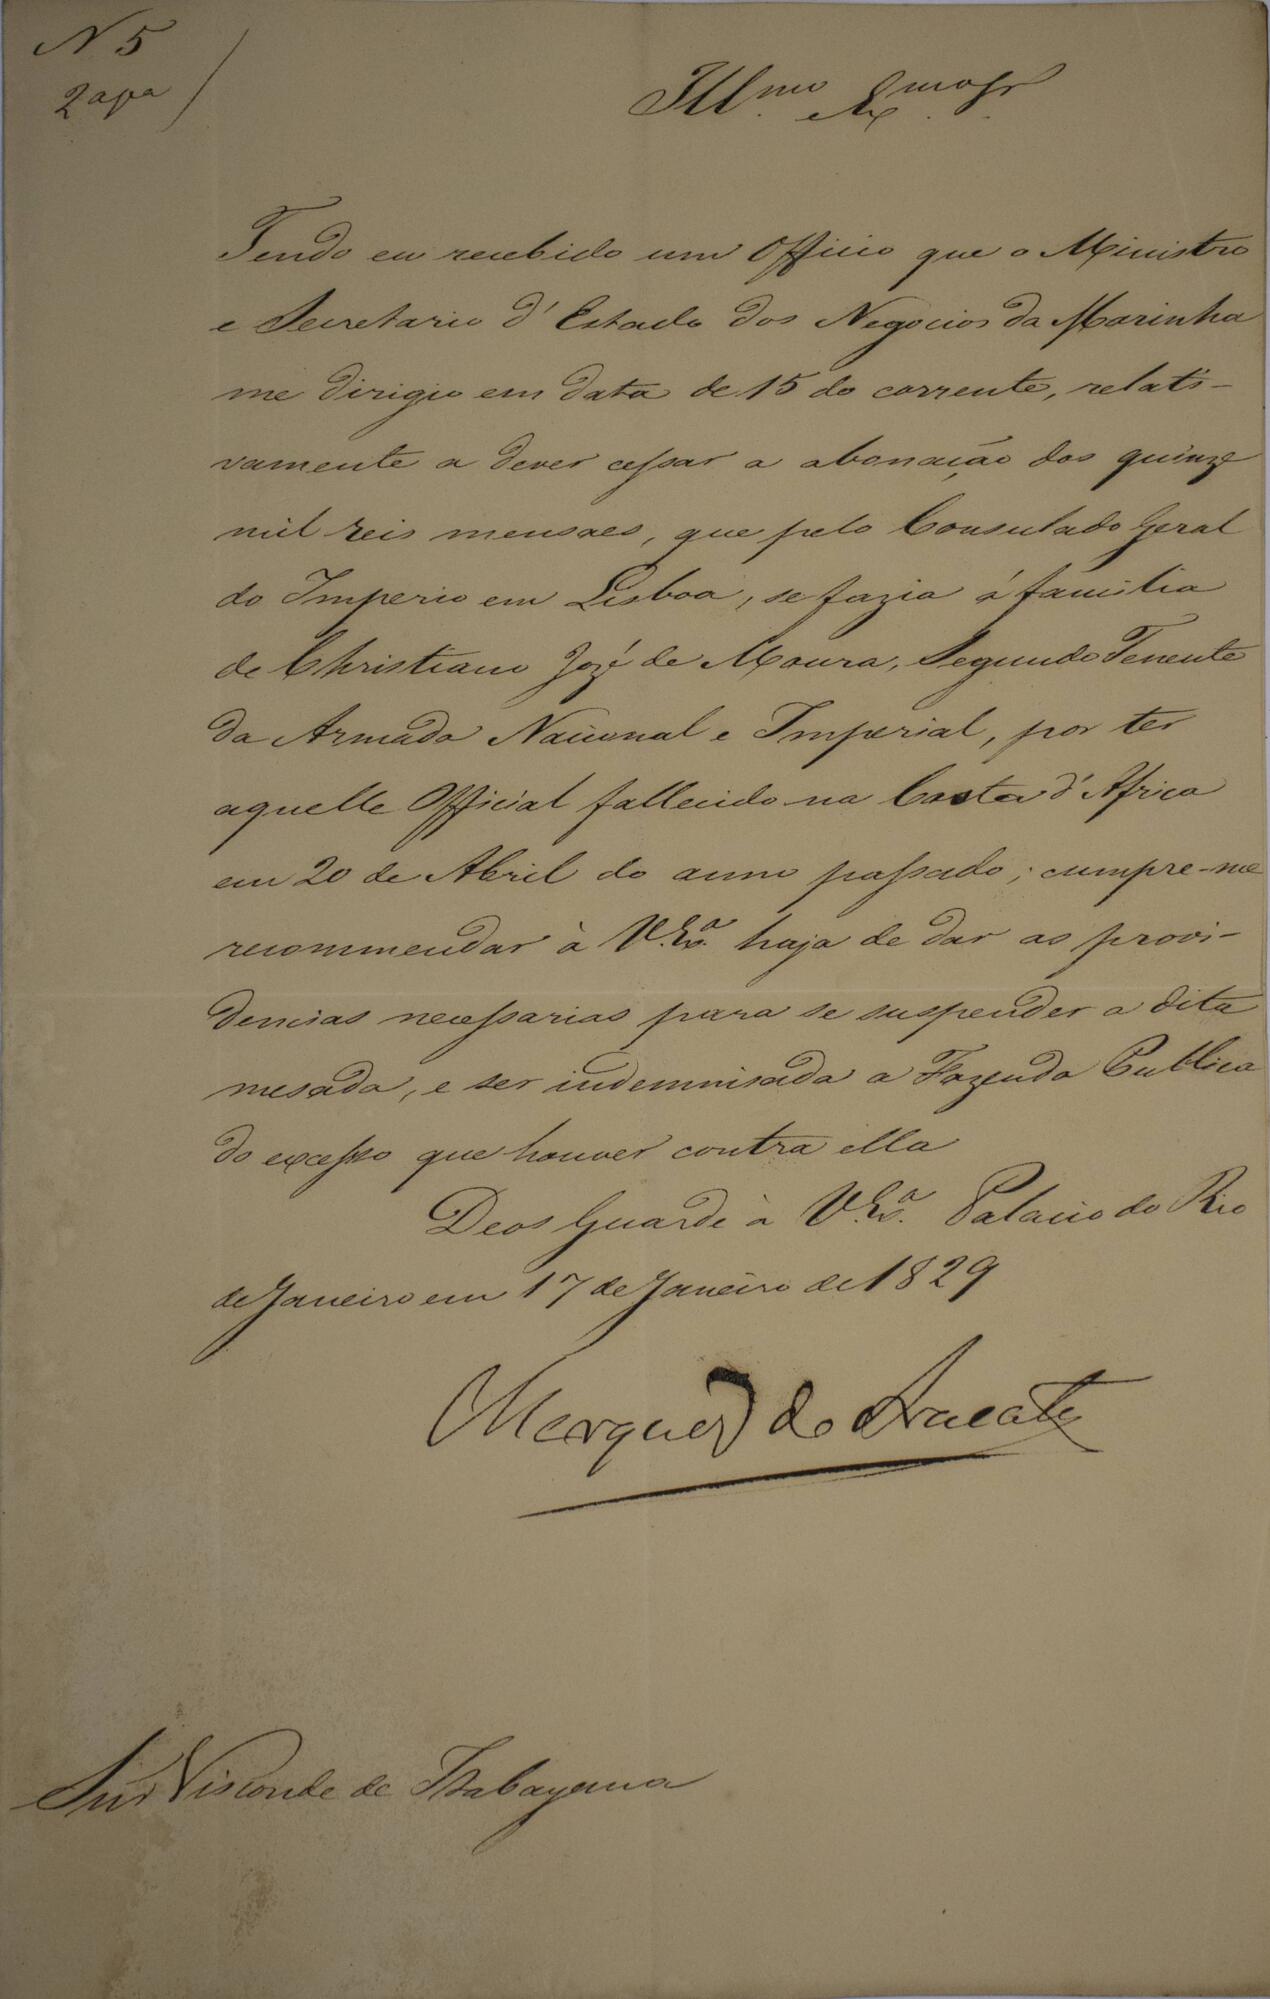 N 5
2ª via
Ill.mo e Ex.mo Sr.
Tendo eu recebido um Officio que o Ministro
e Secretario d'Estado dos Negocios da Marinha
me dirigio em data de 15 do corrente, relati-
vamente a dever cessar a abonação dos quinze
mil reis mensaes, que pelo Consulado Geral
do Imperio em Lisboa, se fazia á familia
de Christiano Jozé de Moura, Segundo Tenente
da Armada Nacional e Imperial, por ter
aquelle Official fallecido na Costa d'Africa
em 20 de Abril do anno passado; cumpre-me
recommendar à V. Ex.ª haja de dar as provi-
dencias necessarias para se suspender a dita
mesada, e ser indemnisada a Fazenda Publica
do excesso que houver contra ella
Deos Guarde à V. Ex.ª Palacio do Rio
de Janeiro em 17 de Janeiro de 1829
Marquez do Aracaty
Snr Visconde de Itabayana